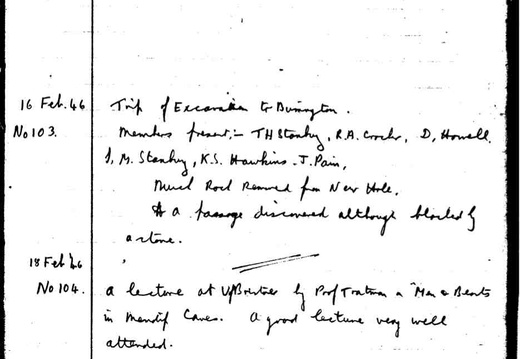 16 Feb. 46 Trip of Excavation to Burrington.
No 103. Members present:- T H Stanbury, R.A. Crocker, D, Howell.
J, M. Stanbury, K.S. Hawkins. J. Pain,
Much Rock Removed from New Hole,
& a passage discovered although blocked by
a stone.
18 Feb 46
No 104. A lecture at by Prof Tratman on "Men & Beasts
in Mendip Caves. A good lecture very well
attended.